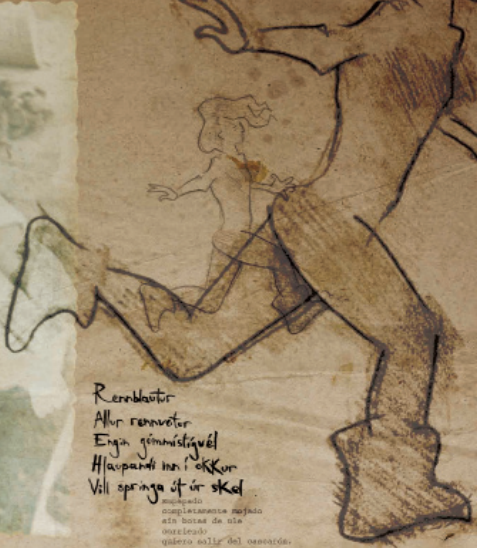 Rennblautur
Allur rennvotur
Engin gúmmístígvél
Hlaupandi inn í okkur
Vill springa út úr skel
empapado
completamente mojado
sin botas de ule
corriendo
quiero salir del cascarón.